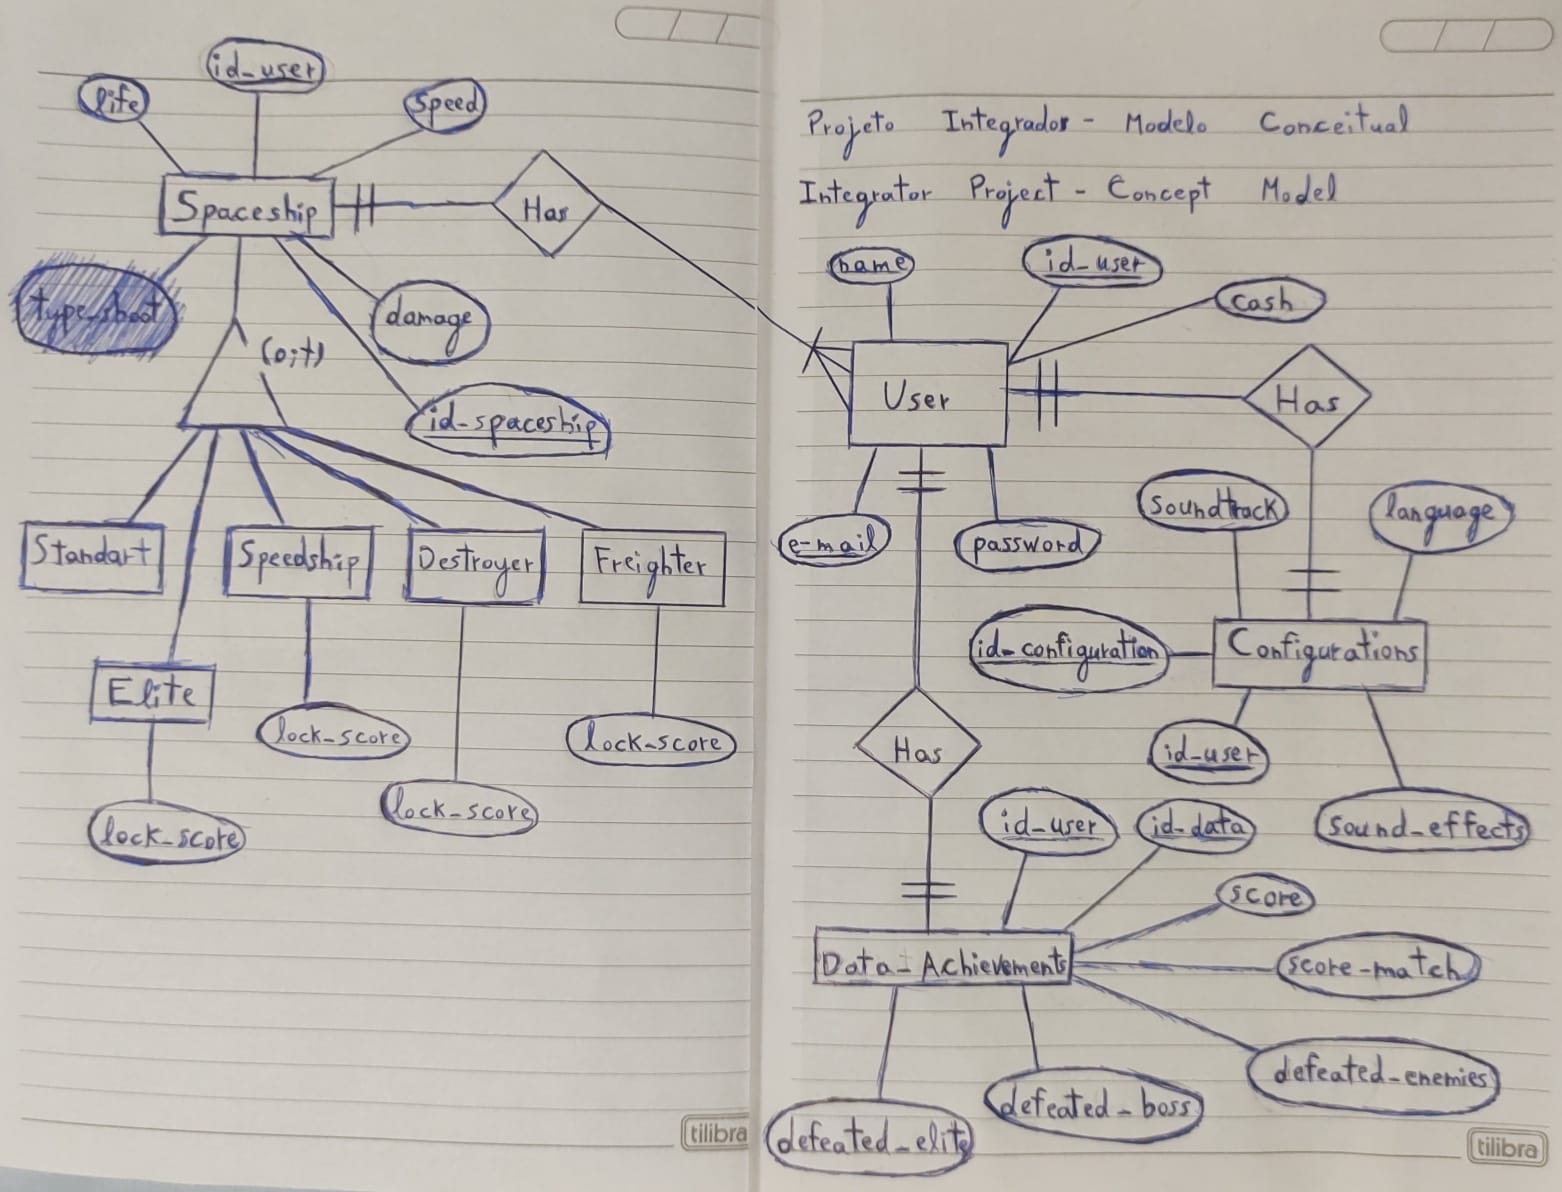 id_user
life
speed
Spaceship
Has
type_shoot
damage
(o;t)
id-spaceship
Standart
Speedship
Destroyer
Freighter
Elite
lock_score
lock-score
lock_score
lock_score
tilibra
Projeto Integrador - Modelo Conceitual
Integrator Project - Concept Model
name
id-user
cash
User
Has
soundtrack
language
e-mail
password
id-configuration
Configurations
Has
id-user
id-user
id-data
sound_effects
score
Data-Achievements
score-match
defeated-enemies
defeated-boss
defeated-elite
tilibra